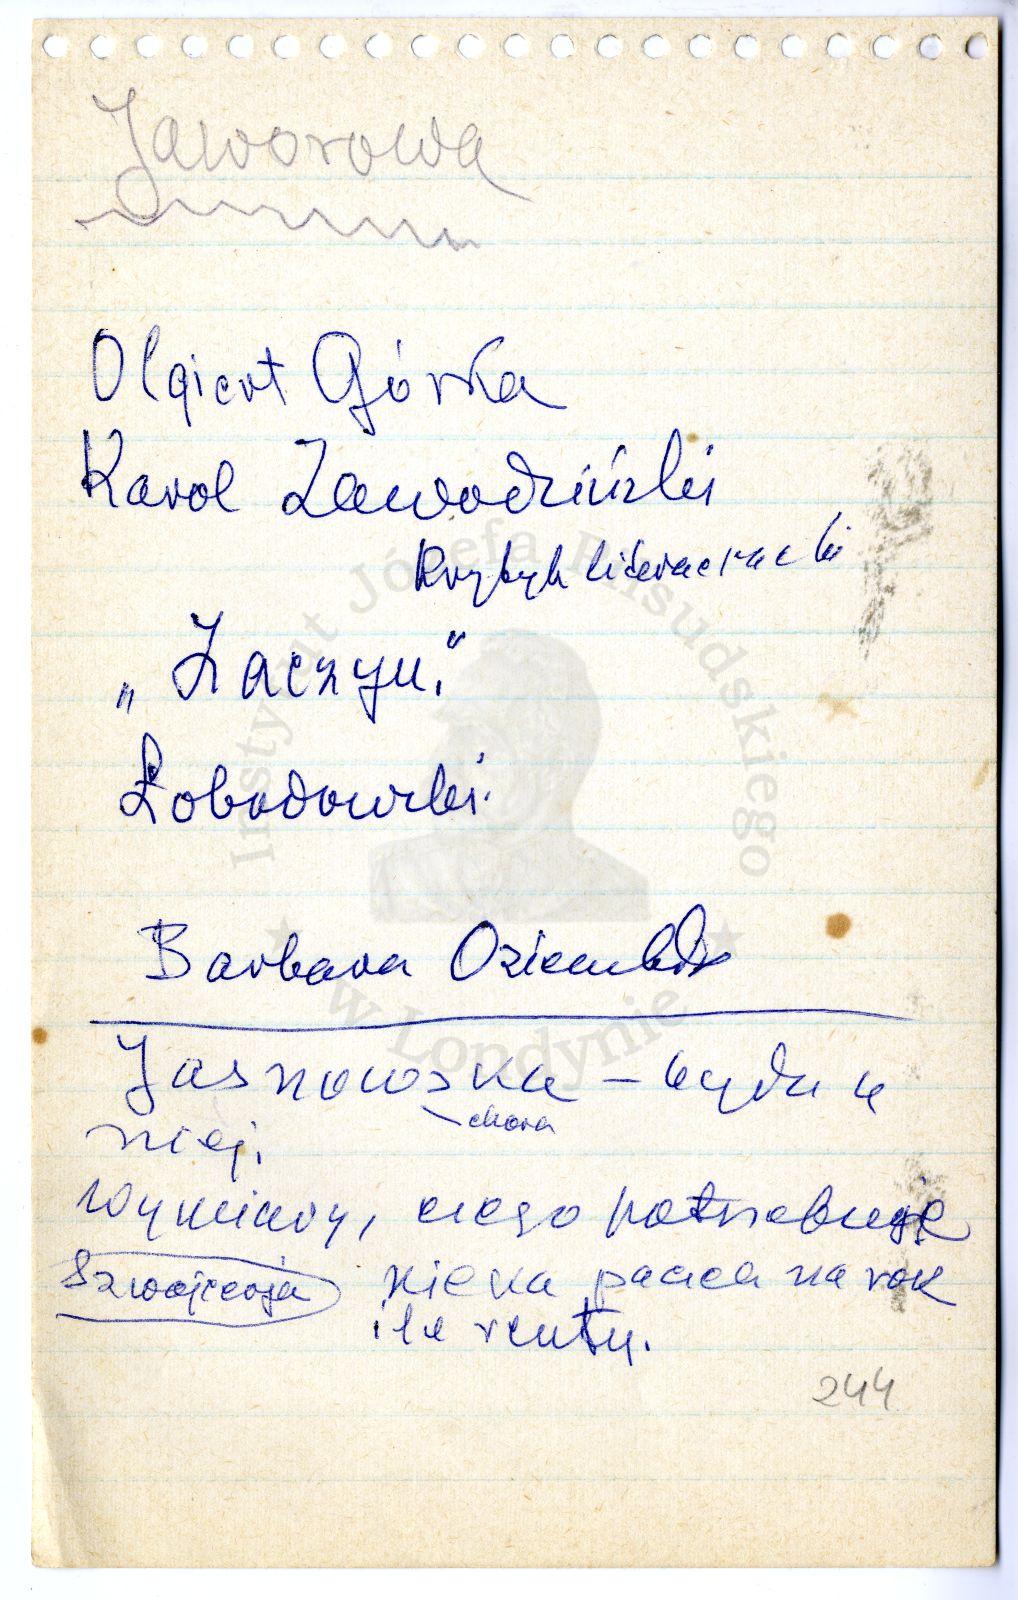 Jaworowa
Olgiert Górka
Karol Zawodziński
krytyk literacki
„Zaczyn."
Łobodowski.
Barbara Oziembł
Jasnowska – będę u
chora
niej.
Wymiary, czego potrzebuje
Szwajcaria
na rok
ile renty.
244
Instytut Józefa Piłsudskiego
w Londynie